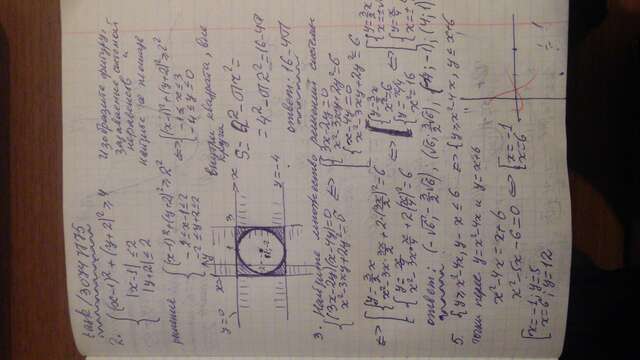 task/30747775
2. { (x-1)² + (y+2)² ≥ 4
|x-1| ≤ 2
|y+2| ≤ 2
Изобразите фигуру,
задаваемые системой
неравенств и
найдите ее площадь
решение { (x-1)² + (y+2)² ≥ 2²
-2 ≤ x-1 ≤ 2
-2 ≤ y+2 ≤ 2
⇔ { (x-1)² + (y+2)² ≥ 2²
-1 ≤ x ≤ 3
-4 ≤ y ≤ 0
y=0
y
1
3
x
y=-4
внутри квадрата, вне
круга
S = a² - πr² =
= 4² - π2² = 16-4π
ответ: 16-4π
3. Найдите множество решений системы
{ (3x-2y)(x-4y)=0
x²-3xy+2y²=6
⇔ [ { 3x-2y=0
x²-3xy+2y²=6
{ x-4y=0
x²-3xy+2y²=6
⇔ [ { y=3/2 x
x²-3x·3x/2+2·(3x/2)²=6
{ y=x/4
x²-3x·x/4+2(x/4)²=6
⇔ [ { y=3/2 x
x²=6
{ y=x/4
x²=16
⇔ [ { y=3/2 x
{ y=x/4
ответ: (-√6;-3/2√6), (√6;3/2√6), (-4;-1), (4;1)
5. { y ≥ x²-4x, y-x ≤ 6 ⇔ { y ≥ x²-4x, y ≤ x+6
точки перес y=x²-4x и y=x+6
x²-4x=x+6
x²-5x-6=0 ⇔ [ x=-1
x=6
[ x=-1; y=5
x=6; y=12